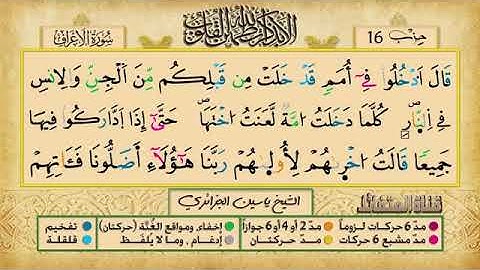 حزب 16
ألا بذكر الله تطمئن القلوب
سورة الأعراف
قَالَ اَدْخُلُوا فِي أُمَمٍ قَدْ خَلَتْ مِن قَبْلِكُم مِّنَ اَلْجِنِّ وَالِانسِ
فِي اِلنَّارِ كُلَّمَا دَخَلَتُ امَّةٌ لَّعَنَتُ اخْتَهَا حَتَّىٰ إِذَا اَدَّارَكُوا فِيهَا
جَمِيعًا قَالَتُ اخْرٜىٰهُمْ لِأُولٜىٰهُمْ رَبَّنَا هَٰؤُلَاءِ اَضَلُّونَا فَـَٔاتِهِمْ
الشيخ ياسين الجزائري
مدّ 6 حركات لزوماً مدّ 2 أو 4 أو 6 جوازاً إخفاء، ومواقع الغُنَّة (حركتان) تفخيم
مدّ مشبع 6 حركات مدّ حركتان إدغام، وما لا يُلفَظ قلقلة